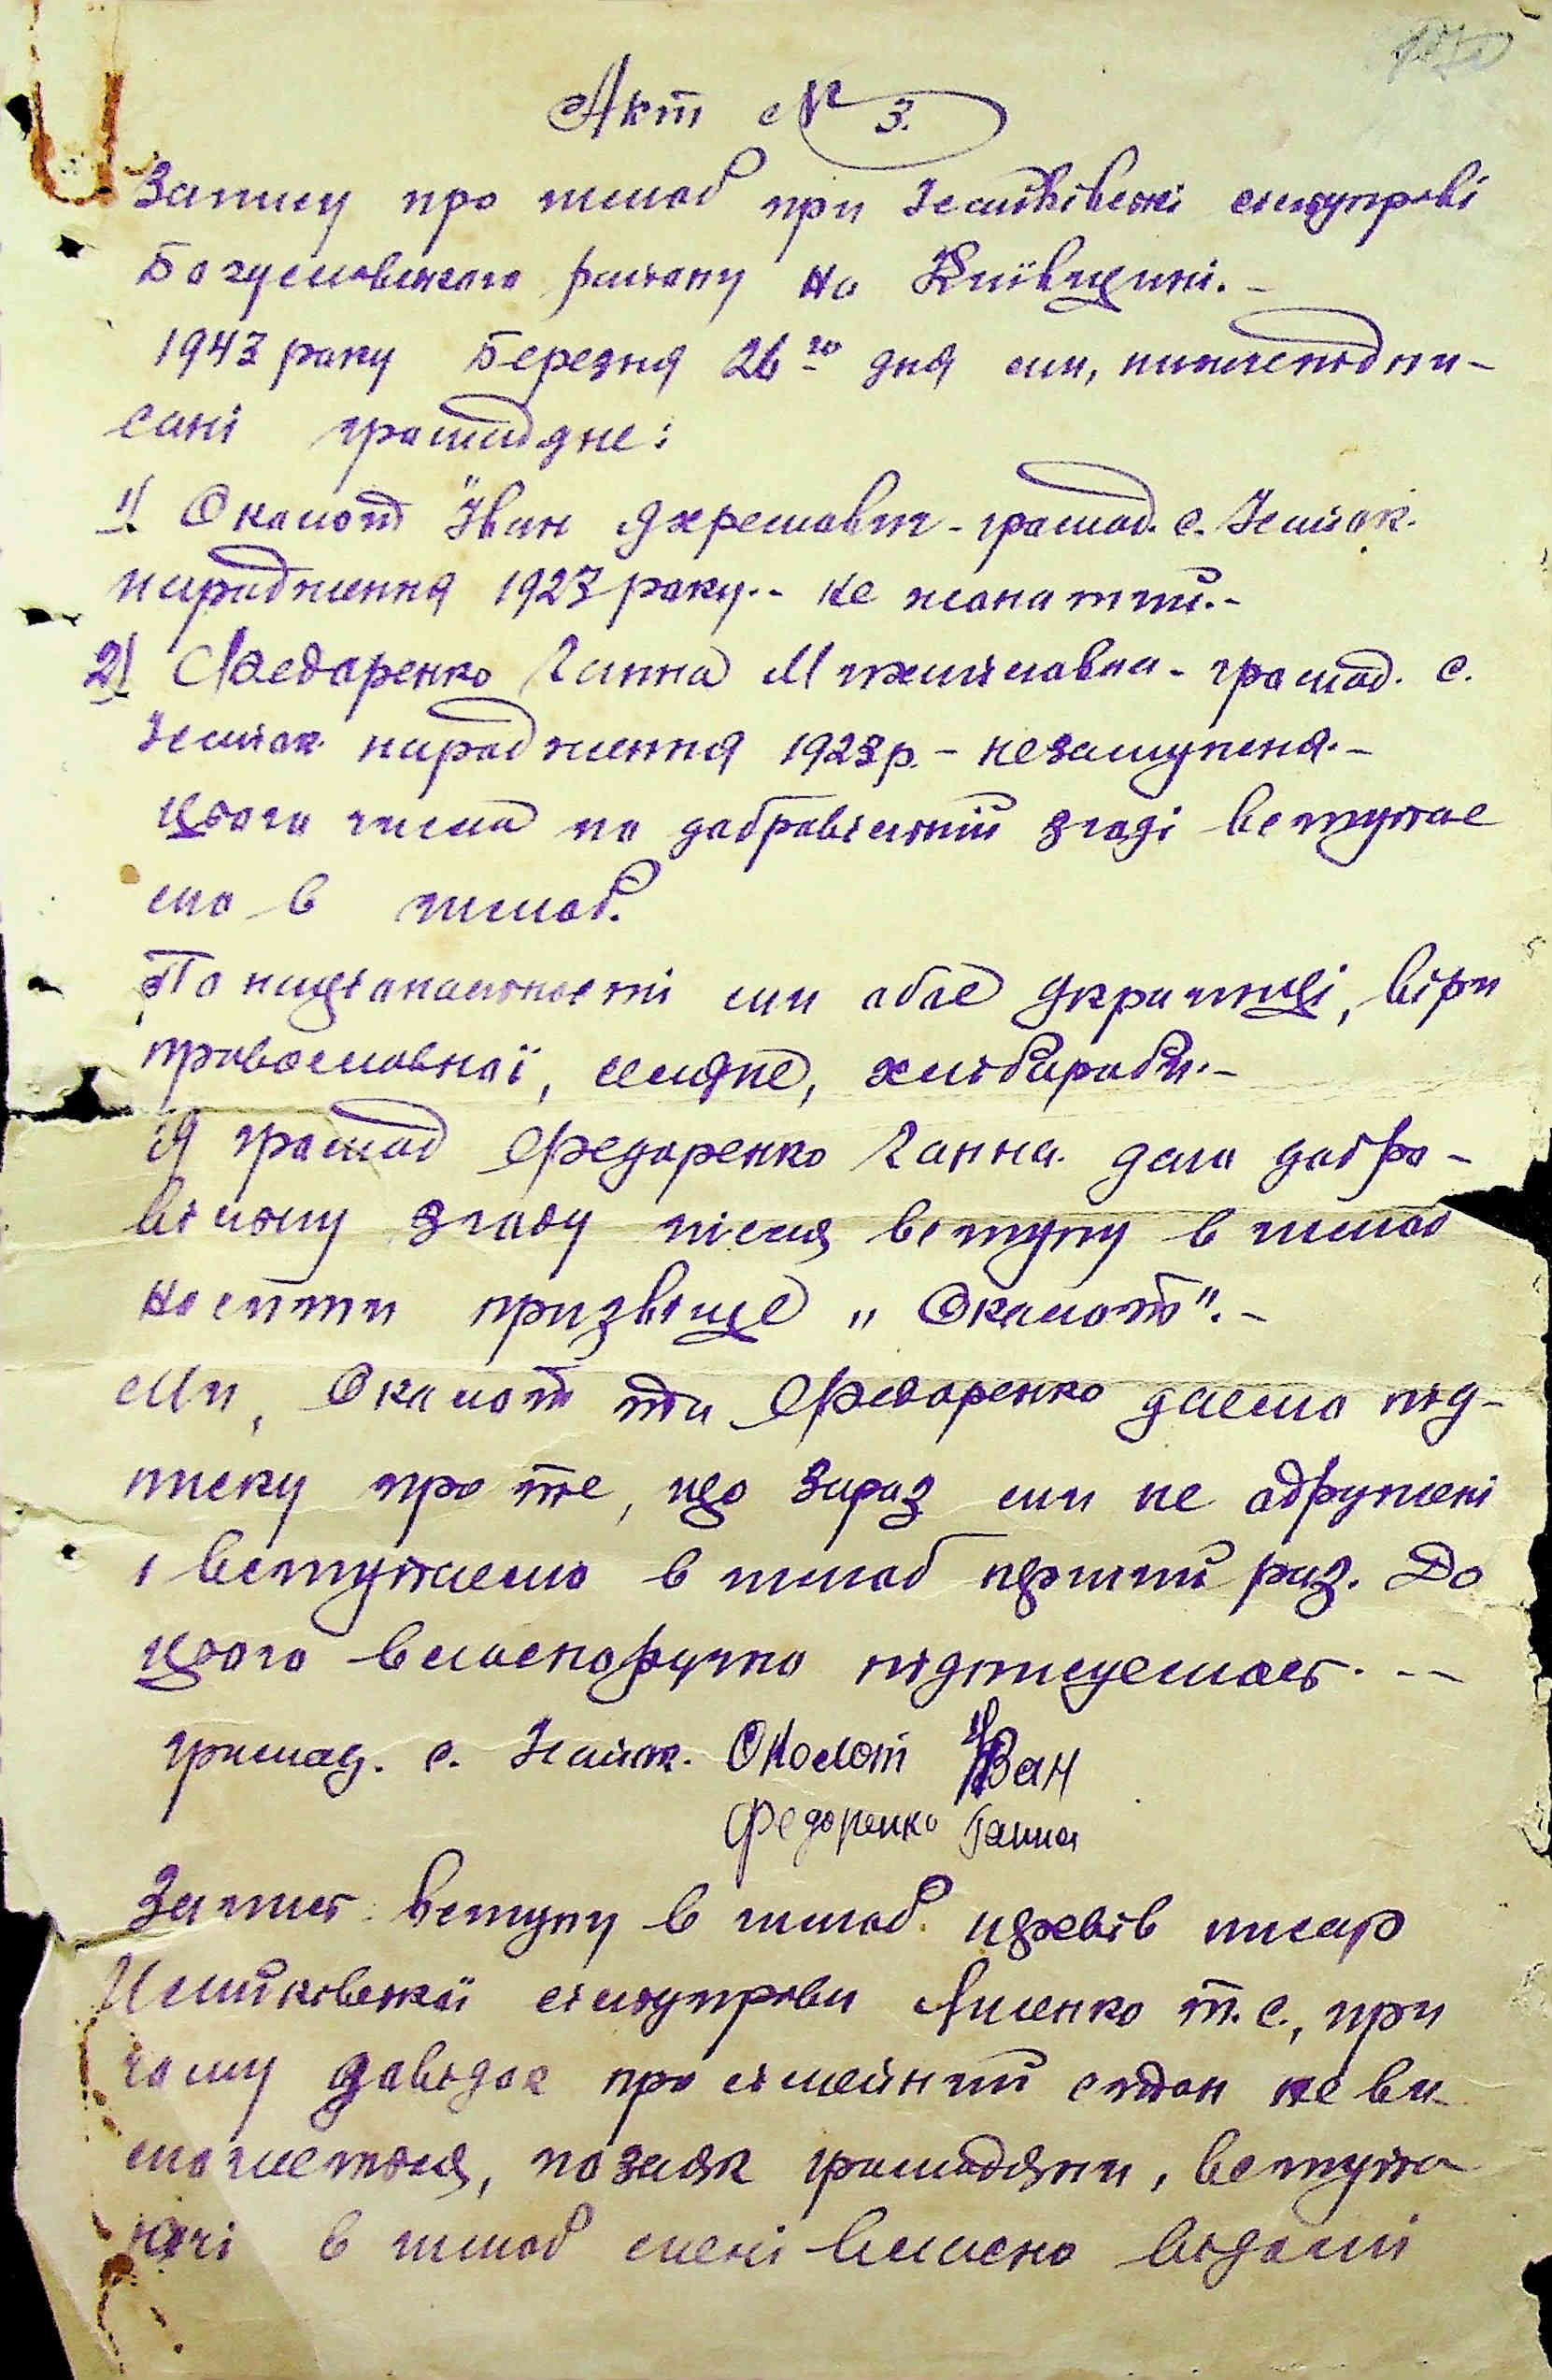 Акт № 3.
Запису про шлюб при Ісайківській сільуправі
Богуславського району на Київщині.-
1943 року Березня 26го дня ми, нижчепідпи-
сані громадяне:
1) Околот Іван Яхремович - громад. с. Ісайок.
народження 1923 року.- не жонатий.-
2) Федоренко Ганна Михайловна - громад. с.
Ісайок народження 1923 р. - незамужня.-
цього числа по добровільній згоді вступає
мо в шлюб.
По національності ми обоє Українці, віри
православної, селяне, хлібороби.-
Я громад Федоренко Ганна дала добро-
вільну згоду після вступу в шлюб
носити призвіще „Околот".-
Ми, Околот та Федоренко даємо під-
писку про те, що зараз ми не одружені
і вступаємо в шлюб перший раз. До
цього власноручно підписуємось. --
громад. с. Ісайок. Околот Іван
Федоренко Ганна
Запис вступу в шлюб провів писар
Ісайківської сільуправи Лисенко Т.С., при
чому довідок про сімейний стан не ви-
магається, позаяк громадяни, вступа
ючі в шлюб мені власно відомі